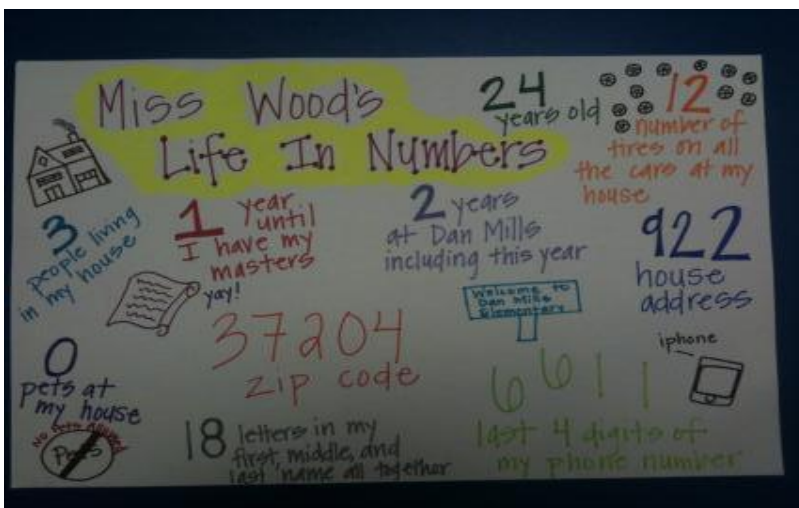 Miss Wood's
Life In Numbers
24
years old
12
number of
tires on all
the cars at my
house
3
people living
in my house
1 year
until
I have my
masters
yay!
2 years
at Dan Mills
including this year
922
house
address
Welcome to
Dan Mills
Elementary
37204
zip code
iphone
0
pets at
my house
No Pets Allowed
Pets
18 letters in my
first, middle, and
last name all together
6611
last 4 digits of
my phone number